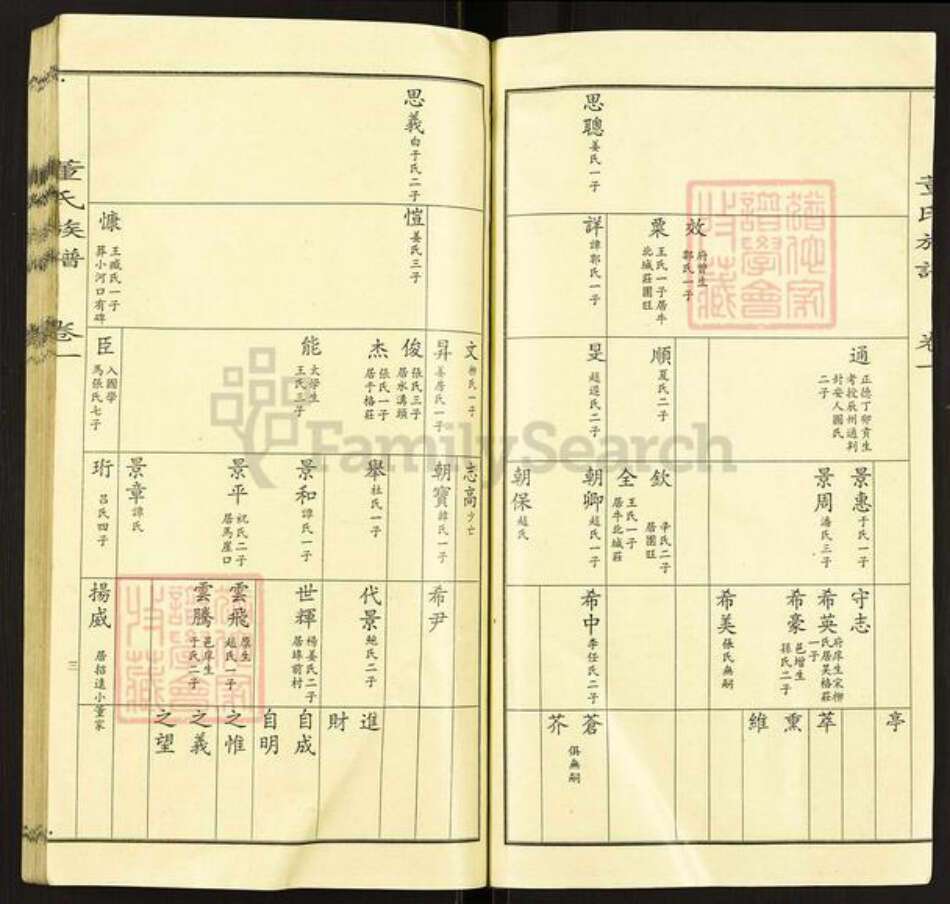 董氏族譜 卷一
思聰 姜氏一子
效 府曾生
郭氏一子
粟 王氏一子居牛
北城莊團旺
詳 譚郭氏一子
通 正德丁卯貢生
考授辰州通判
封安人國氏
二子
順 夏氏二子
旻 趙遲氏二子
景惠 于氏一子
景周 潘氏三子
欽 辛氏二子
居團旺
全 王氏一子
居牛北城莊
朝卿 趙氏一子
朝保 趙氏
守志
希英 府庠生宋柳
氏居芙格莊
一子
希豪 邑增生
孫氏二子
希美 張氏無嗣
希中 李任氏二子
亭
萃
熏
維
蒼
芥
俱無嗣
思義 白于氏二子
愷 姜氏三子
慷 王臧氏一子
葬小河口有碑
文 柳氏一子
昇 姜房氏一子
俊 張氏三子
居水溝頭
杰 張氏一子
居予格莊
能 太學生
王氏三子
臣 入國學
馬張氏七子
志高 少亡
朝寶 韓氏一子
舉 杜氏一子
景和 譚氏一子
景平 祝氏二子
居馬崖口
景章 譚氏
珩 呂氏四子
希尹
代景 鮑氏二子
世輝 楊姜氏二子
居埠前村
雲飛 庠生
趙氏一子
雲騰 邑庠生
于氏二子
揚威 居招遠小董家
進
財
自成
自明
之惟
之義
之望
董氏族譜 卷一
三
FamilySearch